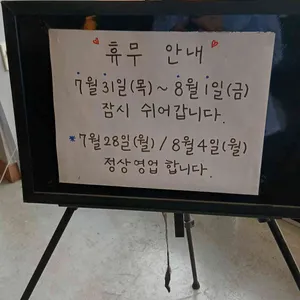 휴무 안내
7월 31일(목) ~ 8월 1일(금)
잠시 쉬어갑니다.
* 7월 28일(월) / 8월 4일(월)
정상영업 합니다.